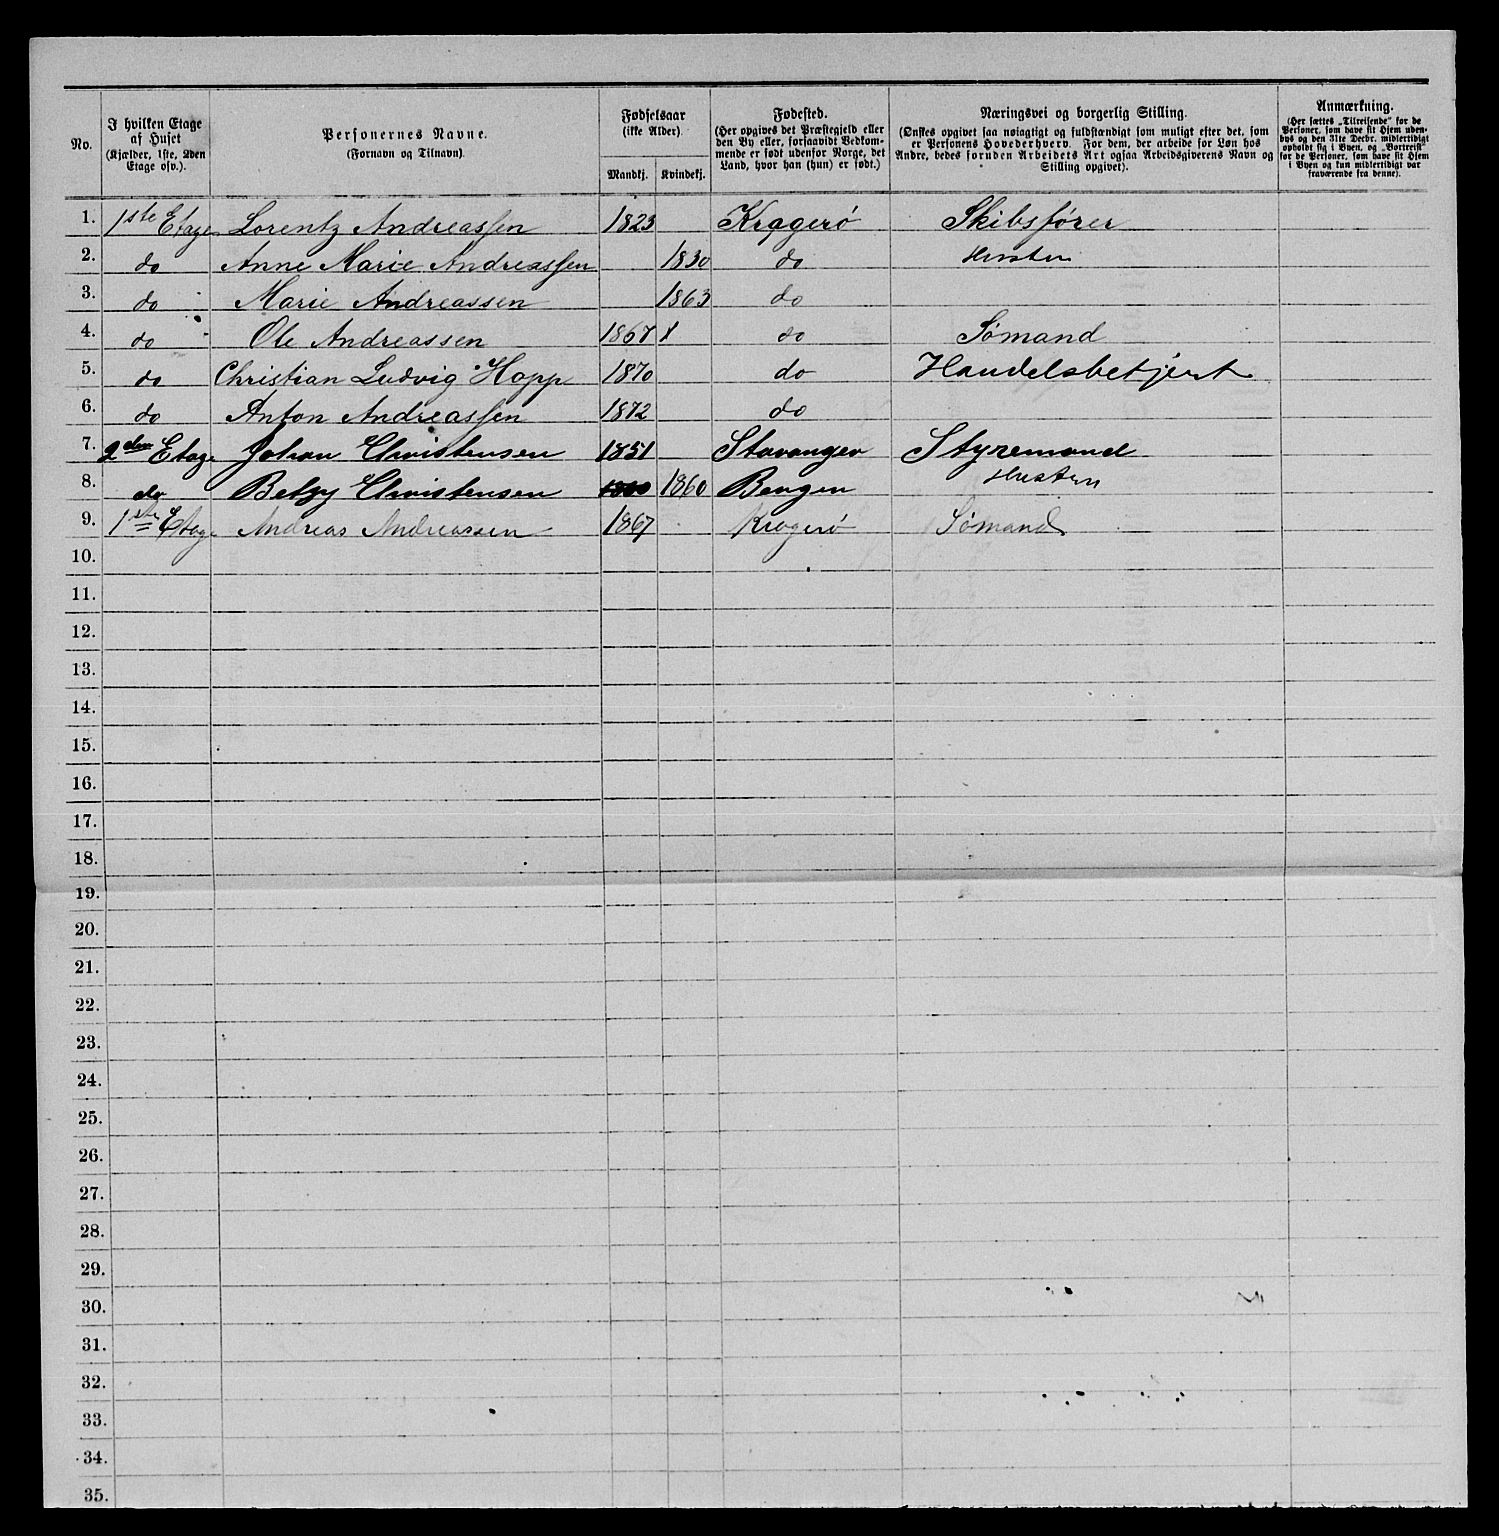 No.
I hvilken Etage
af Huset
(Kjælder, 1ste, 2den
Etage osv.).
Personernes Navne.
(Fornavn og Tilnavn).
Fødselsaar
(ikke Alder).
Mandkj. Kvindekj.
Fødested.
(Her opgives det Præstegjeld eller
den By eller, forsaavidt Vedkom-
mende er født udenfor Norge, det
Land, hvor han (hun) er født.)
Næringsvei og borgerlig Stilling.
(Ønskes opgivet saa nøiagtigt og fuldstændigt som muligt efter det, som
er Personens Hovederhverv. For dem, der arbeide for Løn hos
Andre, bedes foruden Arbeidets Art ogsaa Arbeidsgiverens Navn og
Stilling opgivet).
Anmærkning.
(Her sættes „Tilreisende“ for de
Personer, som have sit Hjem uden-
bys og den 31te Decbr. midlertidigt
opholdt sig i Byen, og „Bortreist“
for de Personer, som have sit Hjem
i Byen og kun midlertidigt var
fraværende fra denne).
1. 1ste Etage Lorentz Andreassen 1823 Kragerö Skibsfører
2. do Anne Marie Andreassen 1830 do Hustru
3. do Marie Andreassen 1863 do
4. do Ole Andreassen 1867 x do Sømand
5. do Christian Ludvig Hopp 1870 do Handelsbetjent
6. do Anton Andreassen 1872 do
7. 2den Etage Johan Christensen 1851 Stavanger Styremand
8. do Betzy Christensen 1860 1860 Bergen Hustru
9. 1ste Etage Andreas Andreassen 1867 Kragerö Sømand
10.
11.
12.
13.
14.
15.
16.
17.
18.
19.
20.
21.
22.
23.
24.
25.
26.
27.
28.
29.
30.
31.
32.
33.
34.
35.